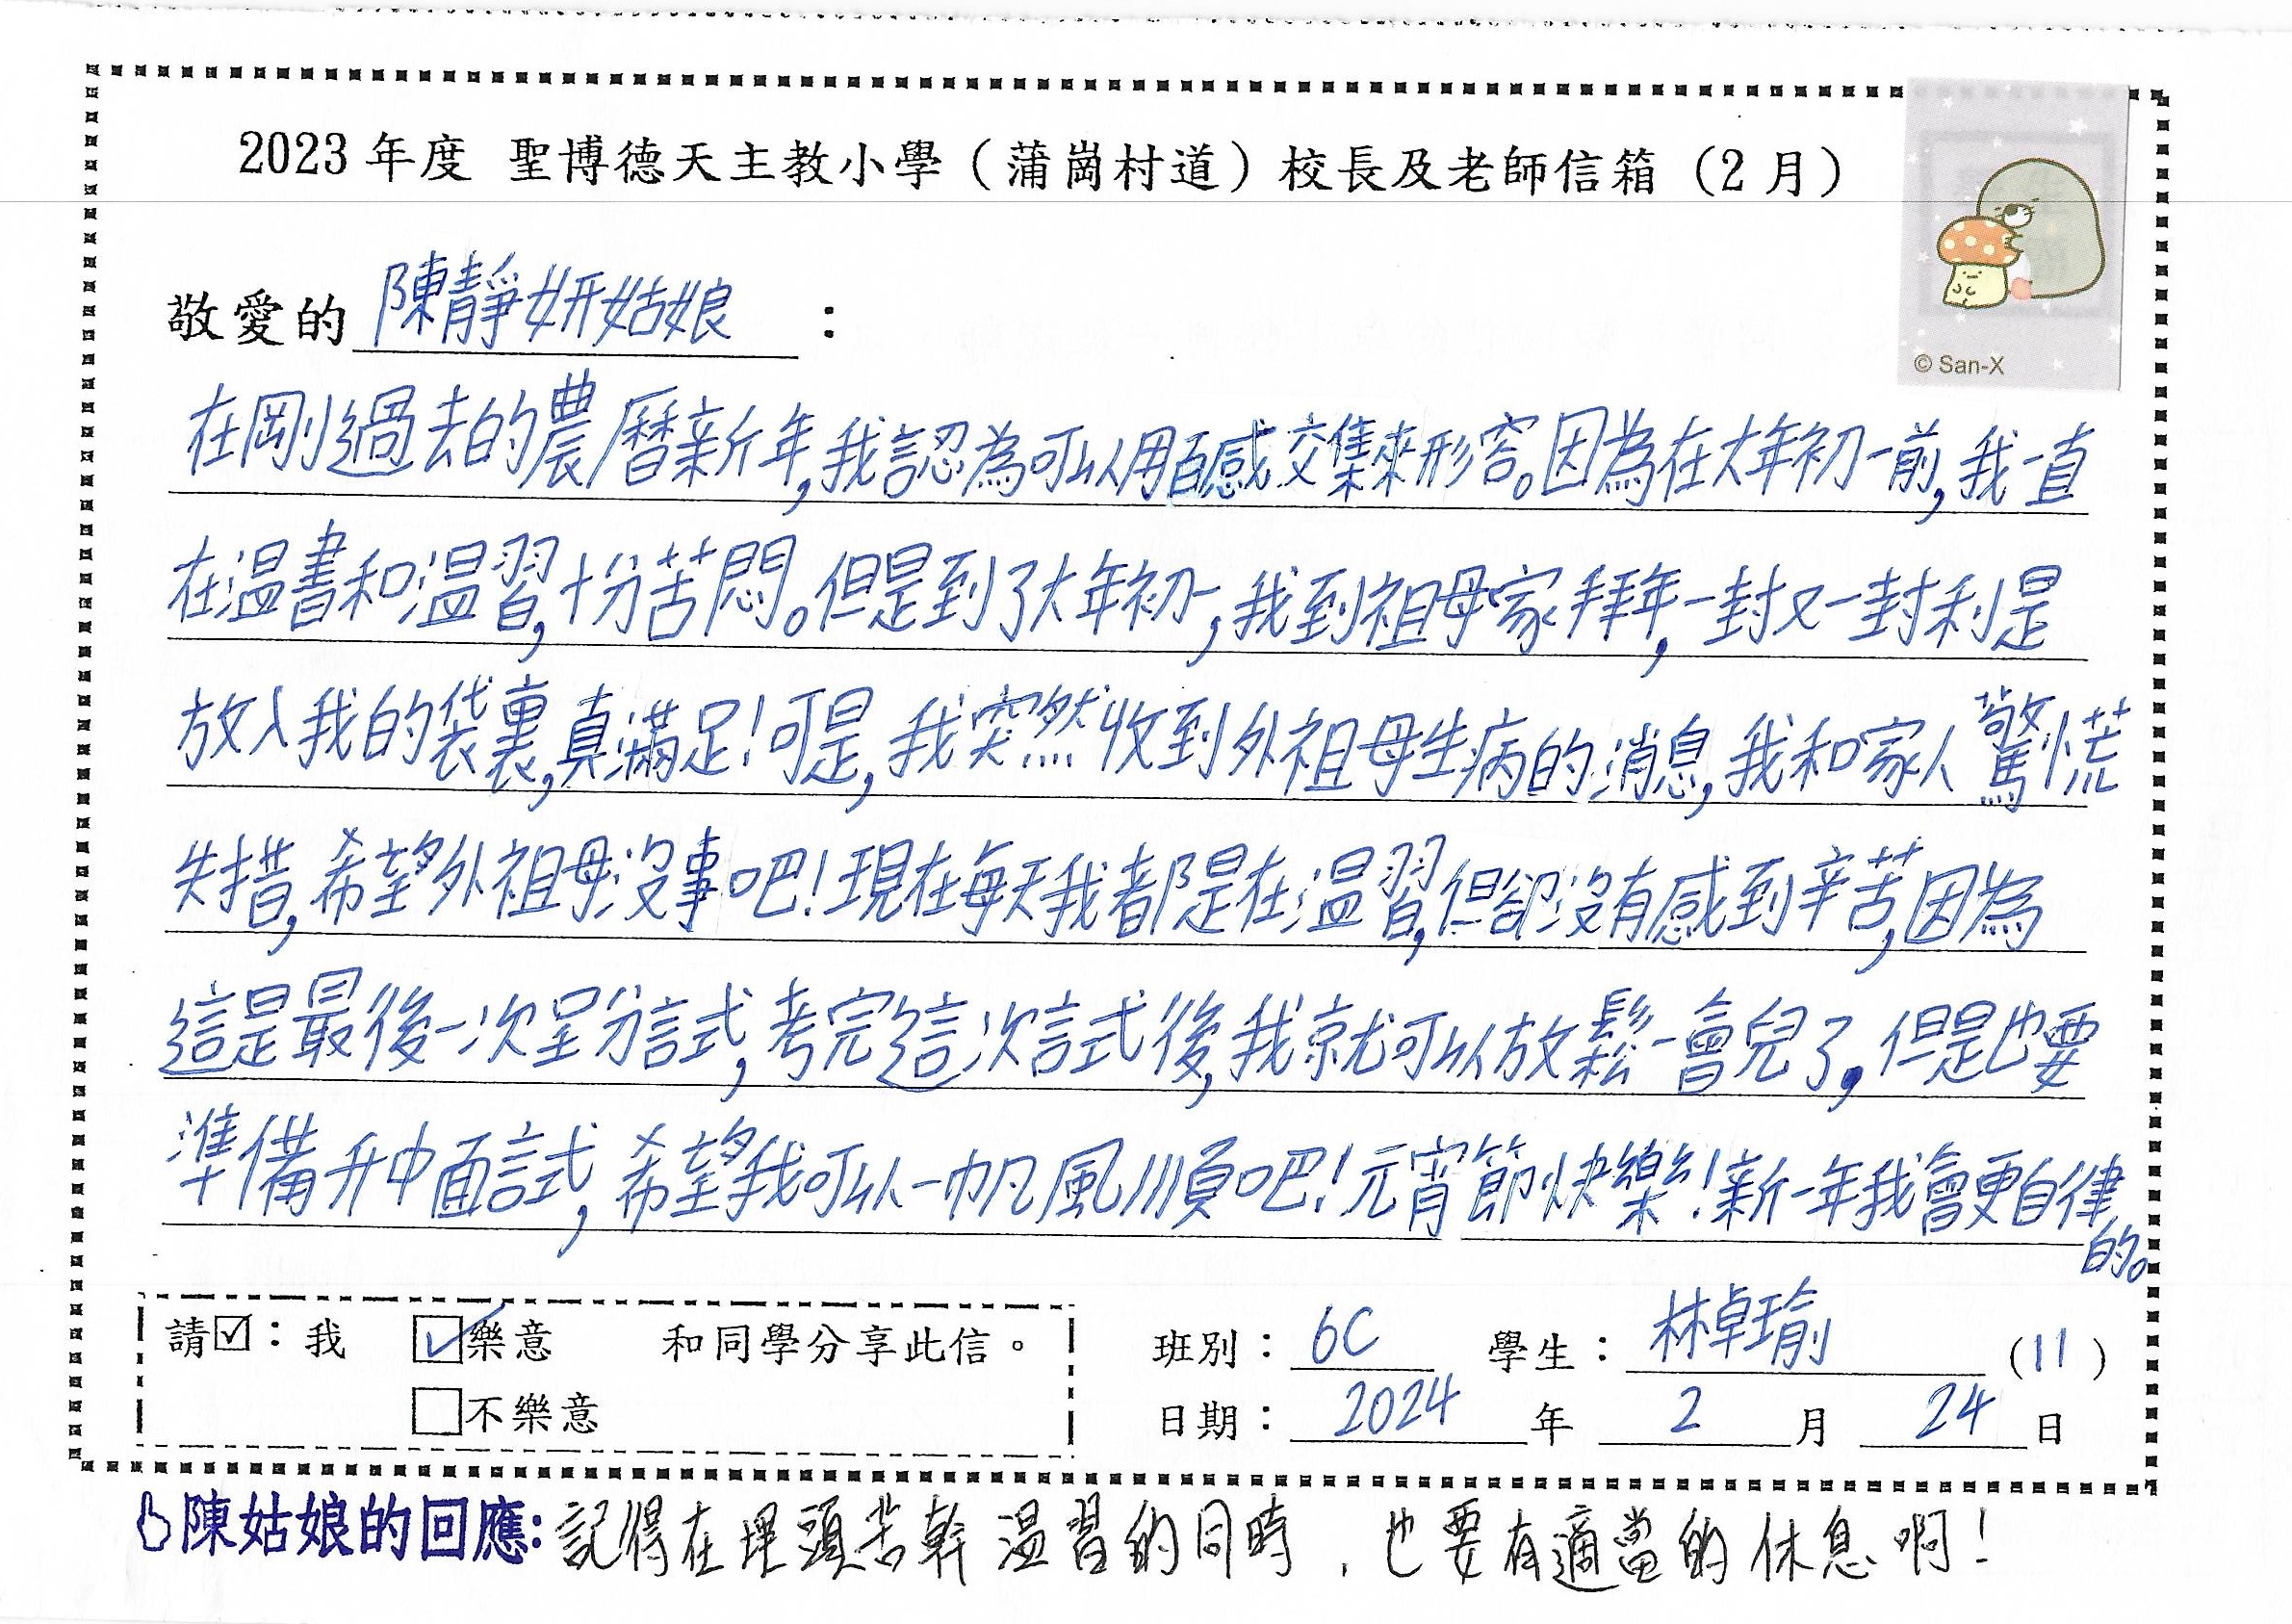 2023 年度 聖博德天主教小學（蒲崗村道）校長及老師信箱（2 月）
© San-X
敬愛的 陳靜妍姑娘 ：
在剛過去的農曆新年,我認為可以用百感交集來形容。因為在大年初一前,我一直
在温書和温習,十分苦悶。但是到了大年初一,我到祖母家拜年,一封又一封利是
放入我的袋裏,真滿足!可是,我突然收到外祖母生病的消息,我和家人驚慌
失措,希望外祖母沒事吧!現在每天我都是在温習,但卻沒有感到辛苦,因為
這是最後一次呈分試,考完這次試後,我就可以放鬆一會兒了,但是也要
準備升中面試,希望我可以一帆風順吧!元宵節快樂!新一年我會更自律
的。
請☑：我 ☑樂意 和同學分享此信。
□不樂意
班別： 6C 學生： 林卓瑜 (11)
日期： 2024 年 2 月 24 日
陳姑娘的回應: 記得在埋頭苦幹温習的同時，也要有適當的休息啊！